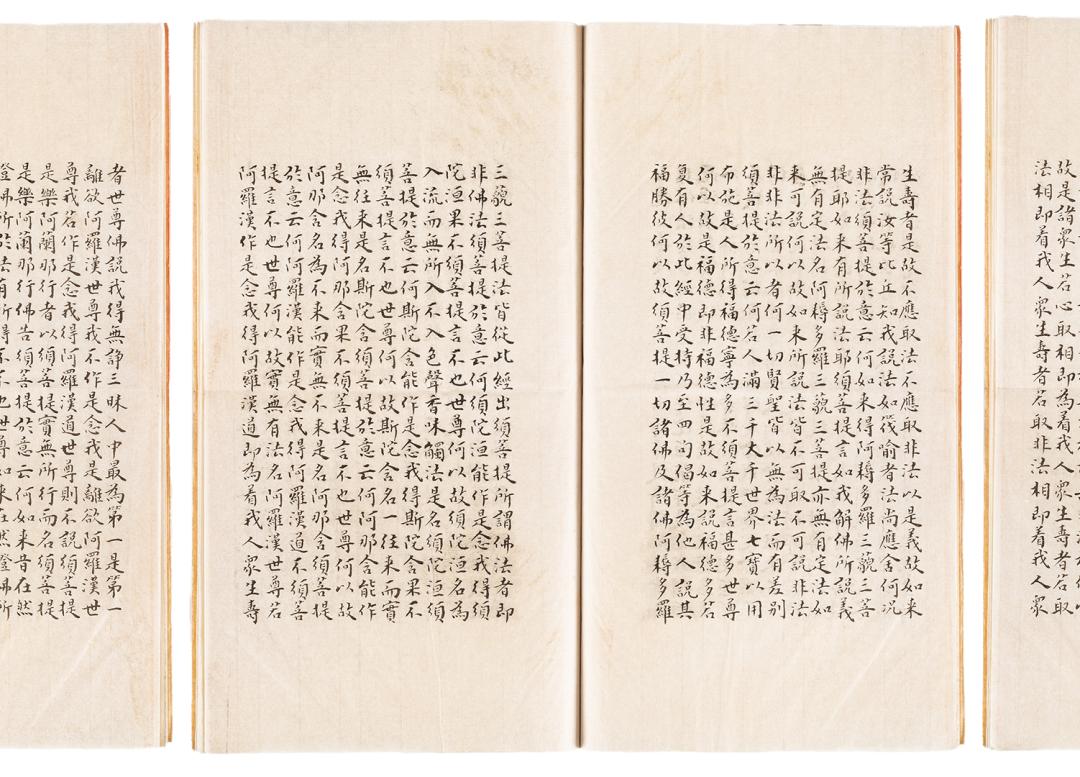 故是諸衆生若心取相即為着我人衆生壽者若取
法相即着我人衆生壽者若取非法相即着我人衆
生壽者是故不應取法不應取非法以是義故如来
常說汝等比丘知我說法如筏喻者法尚應舍何况
非法須菩提於意云何如来得阿耨多羅三藐三菩
提耶如来有所說法耶須菩提言如我解佛所說義
無有定法名阿耨多羅三藐三菩提亦無有定法如
来可說何以故如来所說法皆不可取不可說非法
非非法所以者何一切賢聖皆以無為法而有差别
須菩提於意云何若人滿三千大千世界七寶以用
布施是人所得福德寧為多不須菩提言甚多世尊
何以故是福德即非福德性是故如来說福德多若
復有人於此經中受持乃至四句偈等為他人說其
福勝彼何以故須菩提一切諸佛及諸佛阿耨多羅
三藐三菩提法皆從此經出須菩提所謂佛法者即
非佛法須菩提於意云何須陀洹能作是念我得須
陀洹果不須菩提言不也世尊何以故須陀洹名為
入流而無所入不入色聲香味觸法是名須陀洹須
菩提於意云何斯陀含能作是念我得斯陀含果不
須菩提言不也世尊何以故斯陀含名一往来而實
無往来是名斯陀含須菩提於意云何阿那含能作
是念我得阿那含果不須菩提言不也世尊何以故
阿那含名為不来而實無不来是名阿那含須菩提
於意云何阿羅漢能作是念我得阿羅漢道不須菩
提言不也世尊何以故實無有法名阿羅漢世尊若
阿羅漢作是念我得阿羅漢道即為着我人衆生壽
者世尊佛說我得無諍三昧人中最為第一是第一
離欲阿羅漢世尊我不作是念我是離欲阿羅漢世
尊我若作是念我得阿羅漢道世尊則不說須菩提
是樂阿蘭那行者以須菩提實無所行而名須菩提
是樂阿蘭那行佛告須菩提於意云何如来昔在然